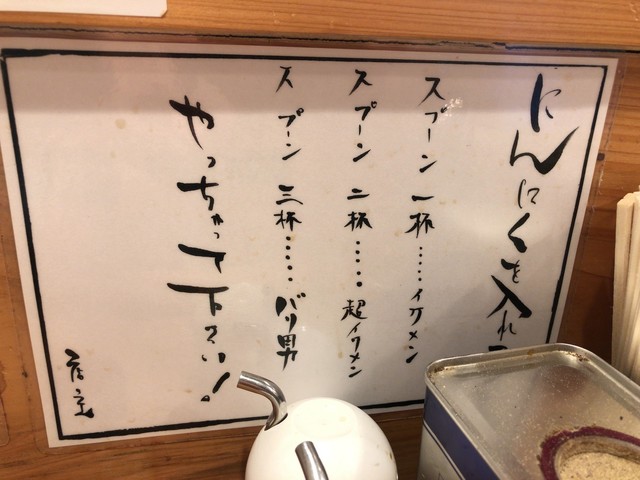 にんにくを入れ
スプーン 一杯……イケメン
スプーン 二杯……超イケメン
スプーン 三杯……バリ男
やっちゃって下さい!
店主